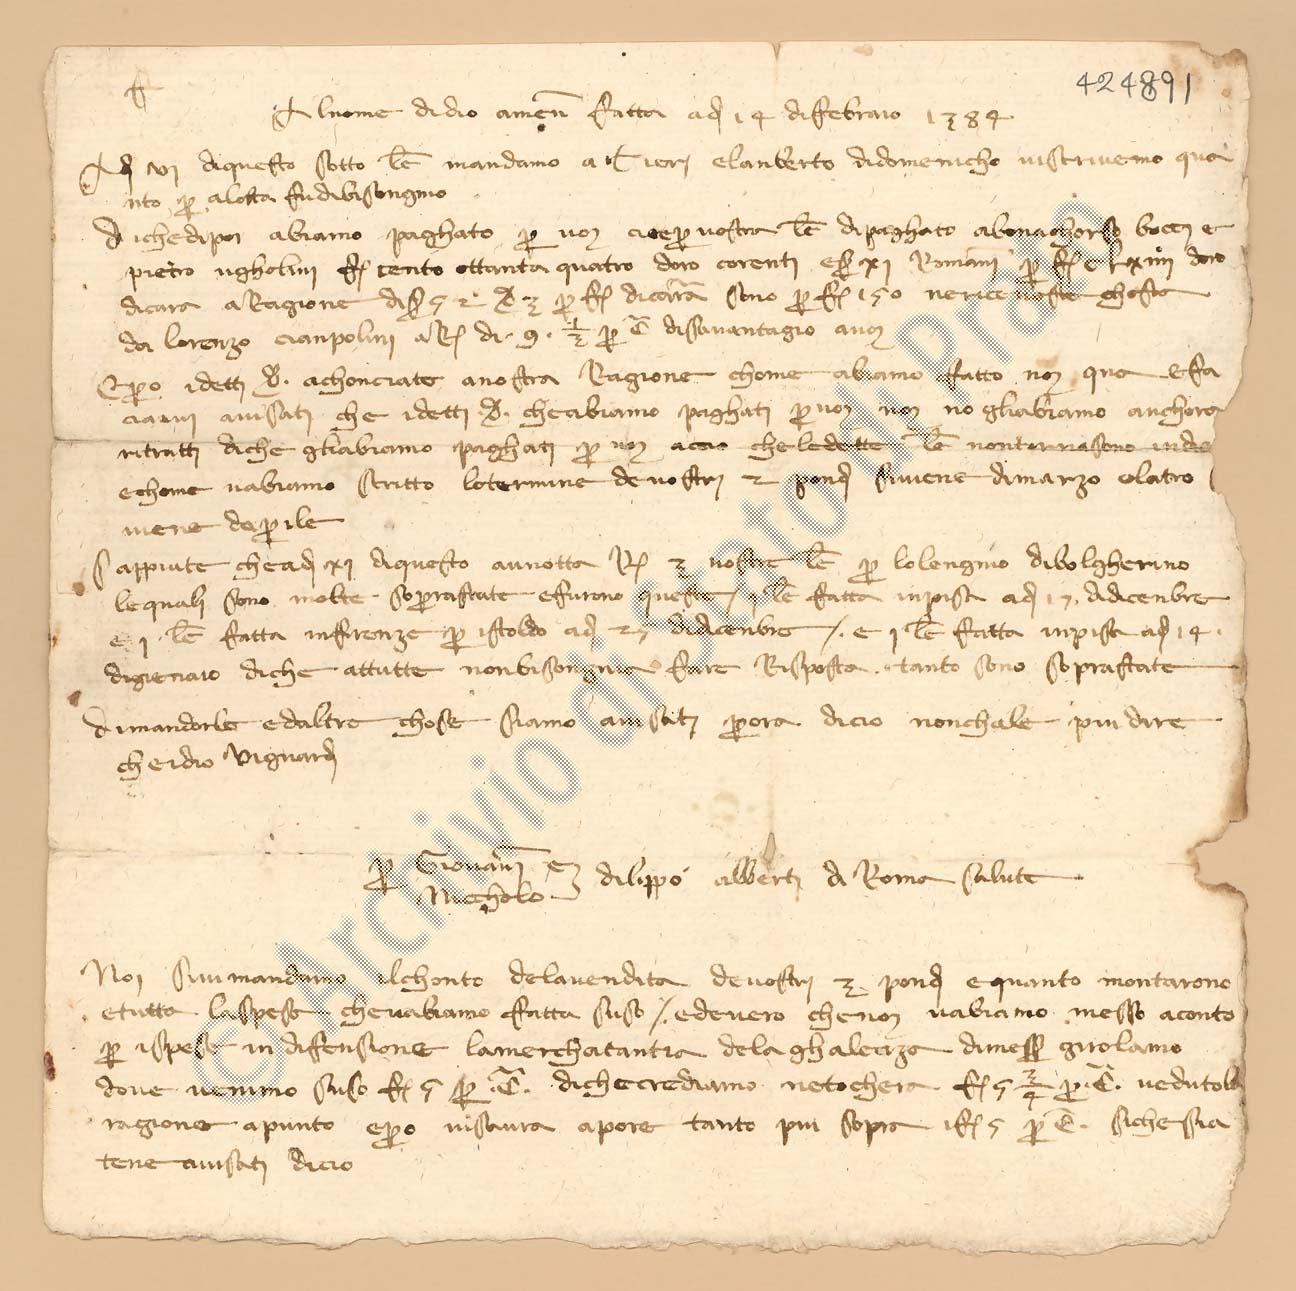 424891
Al nome di dio amen fatta adi 14 di febraio 1384
Adi VI di questo sotto lē mandamo a Tieri e lanberto di domenicho vi scrivemo qua
nto p alotta fu di bisongnio
Di che dipoi abiamo paghato p voi cioe p vostra lē di paghato a bonachorso bocci e
pietro ugholini f. cento ottanta quatro doro corenti
dicara a Ragione di s 52 d 3 p f. di cam̄a sono p f. 150 chosta
da lorenzo cianpolini a R. di 9 ½ p C̄ disavantagio a voi
E pero i detti d. achonciate a nostra Ragione chome abiamo fatto noi qua e fa
ciamvi avisati che i detti d. che abiamo paghati p voi noi no gliabiamo anchora
ritratti di che gliabiamo paghati p voi accio che le dette lē non tornasono indie
e chome vabiamo scritto lo termine de vostri 2 pondi si viene di marzo e latro
viene daprile
Sappiute che adi XI di questo avnotta R. 3 vostre lē p lo lengnio di bolgherino
le quali sono molte soprastate e furono queste / 1 lē fatta in pisa adi 17 di dicenbre
e 1 lē fatta in firenze p istoldo adi 27 di dicenbre /. e 1 lē fatta in pisa adi 14
di gienaio di che attutte non bisongnia fare Risposta tanto sono soprastate
Di mandorle ed altre chose siamo avisati p ora di cio non chale piu dire
che idio vi guardi
p Giovanni e
Nicholo
di lippo alberti di Roma salute
Noi si vi mandamo il chonto dela vendita de vostri 2 pondi e quanto montarono
e tutta la spesa che vabiamo fatta suso /. ed e vero che noi vabiamo messo a conto
p ispese in difensione la merchatantia dela ghaleazza di mess girolamo
dove venimo suso f. 5 p C̄. di che crediamo ve tochera f. 5 ¾ p C̄. vedutola
ragione apunto e pero vissavra a pore tanto piu sopra i f. 5 p C̄. si che sia
tene avisati di cio
© Archivio di Stato di Prato